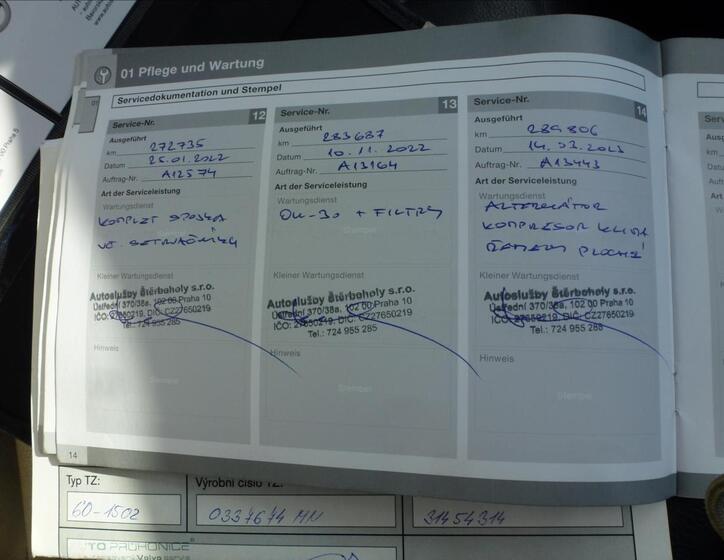 01 Pflege und Wartung
Servicedokumentation und Stempel
Service-Nr. 12
Ausgeführt
km 272735
Datum 25.01.2022
Auftrag-Nr. A12574
Art der Serviceleistung
Wartungsdienst
KOMPLET SPOJKA
VČ. SETRVAČNÍKU
Kleiner Wartungsdienst
Autoslužby Štěrboholy s.r.o.
Ústřední 370/38a, 102 00 Praha 10
IČO: 27650219, DIČ: CZ27650219
Tel.: 724 955 285
Hinweis
Stempel
Service-Nr. 13
Ausgeführt
km 283687
Datum 10.11.2022
Auftrag-Nr. A13164
Art der Serviceleistung
Wartungsdienst
+ FILTRY
Stempel
Kleiner Wartungsdienst
Autoslužby Štěrboholy s.r.o.
Ústřední 370/38a, 102 00 Praha 10
IČO: 27650219, DIČ: CZ27650219
Tel.: 724 955 285
Hinweis
Stempel
Service-Nr. 14
Ausgeführt
km 289806
Datum 14.03.2023
Auftrag-Nr. A13443
Art der Serviceleistung
Wartungsdienst
ALTERNÁTOR
KOMPRESOR KLIMA
ŘEMENY PLOCHÉ
Kleiner Wartungsdienst
Autoslužby Štěrboholy s.r.o.
Ústřední 370/38a, 102 00 Praha 10
IČO: 27650219, DIČ: CZ27650219
Tel.: 724 955 285
Hinweis
Stempel
14
Typ TZ:
60-1502
Výrobní číslo TZ:
0337674 MN
31454314
AUTO PRŮHONICE
Volvo servis